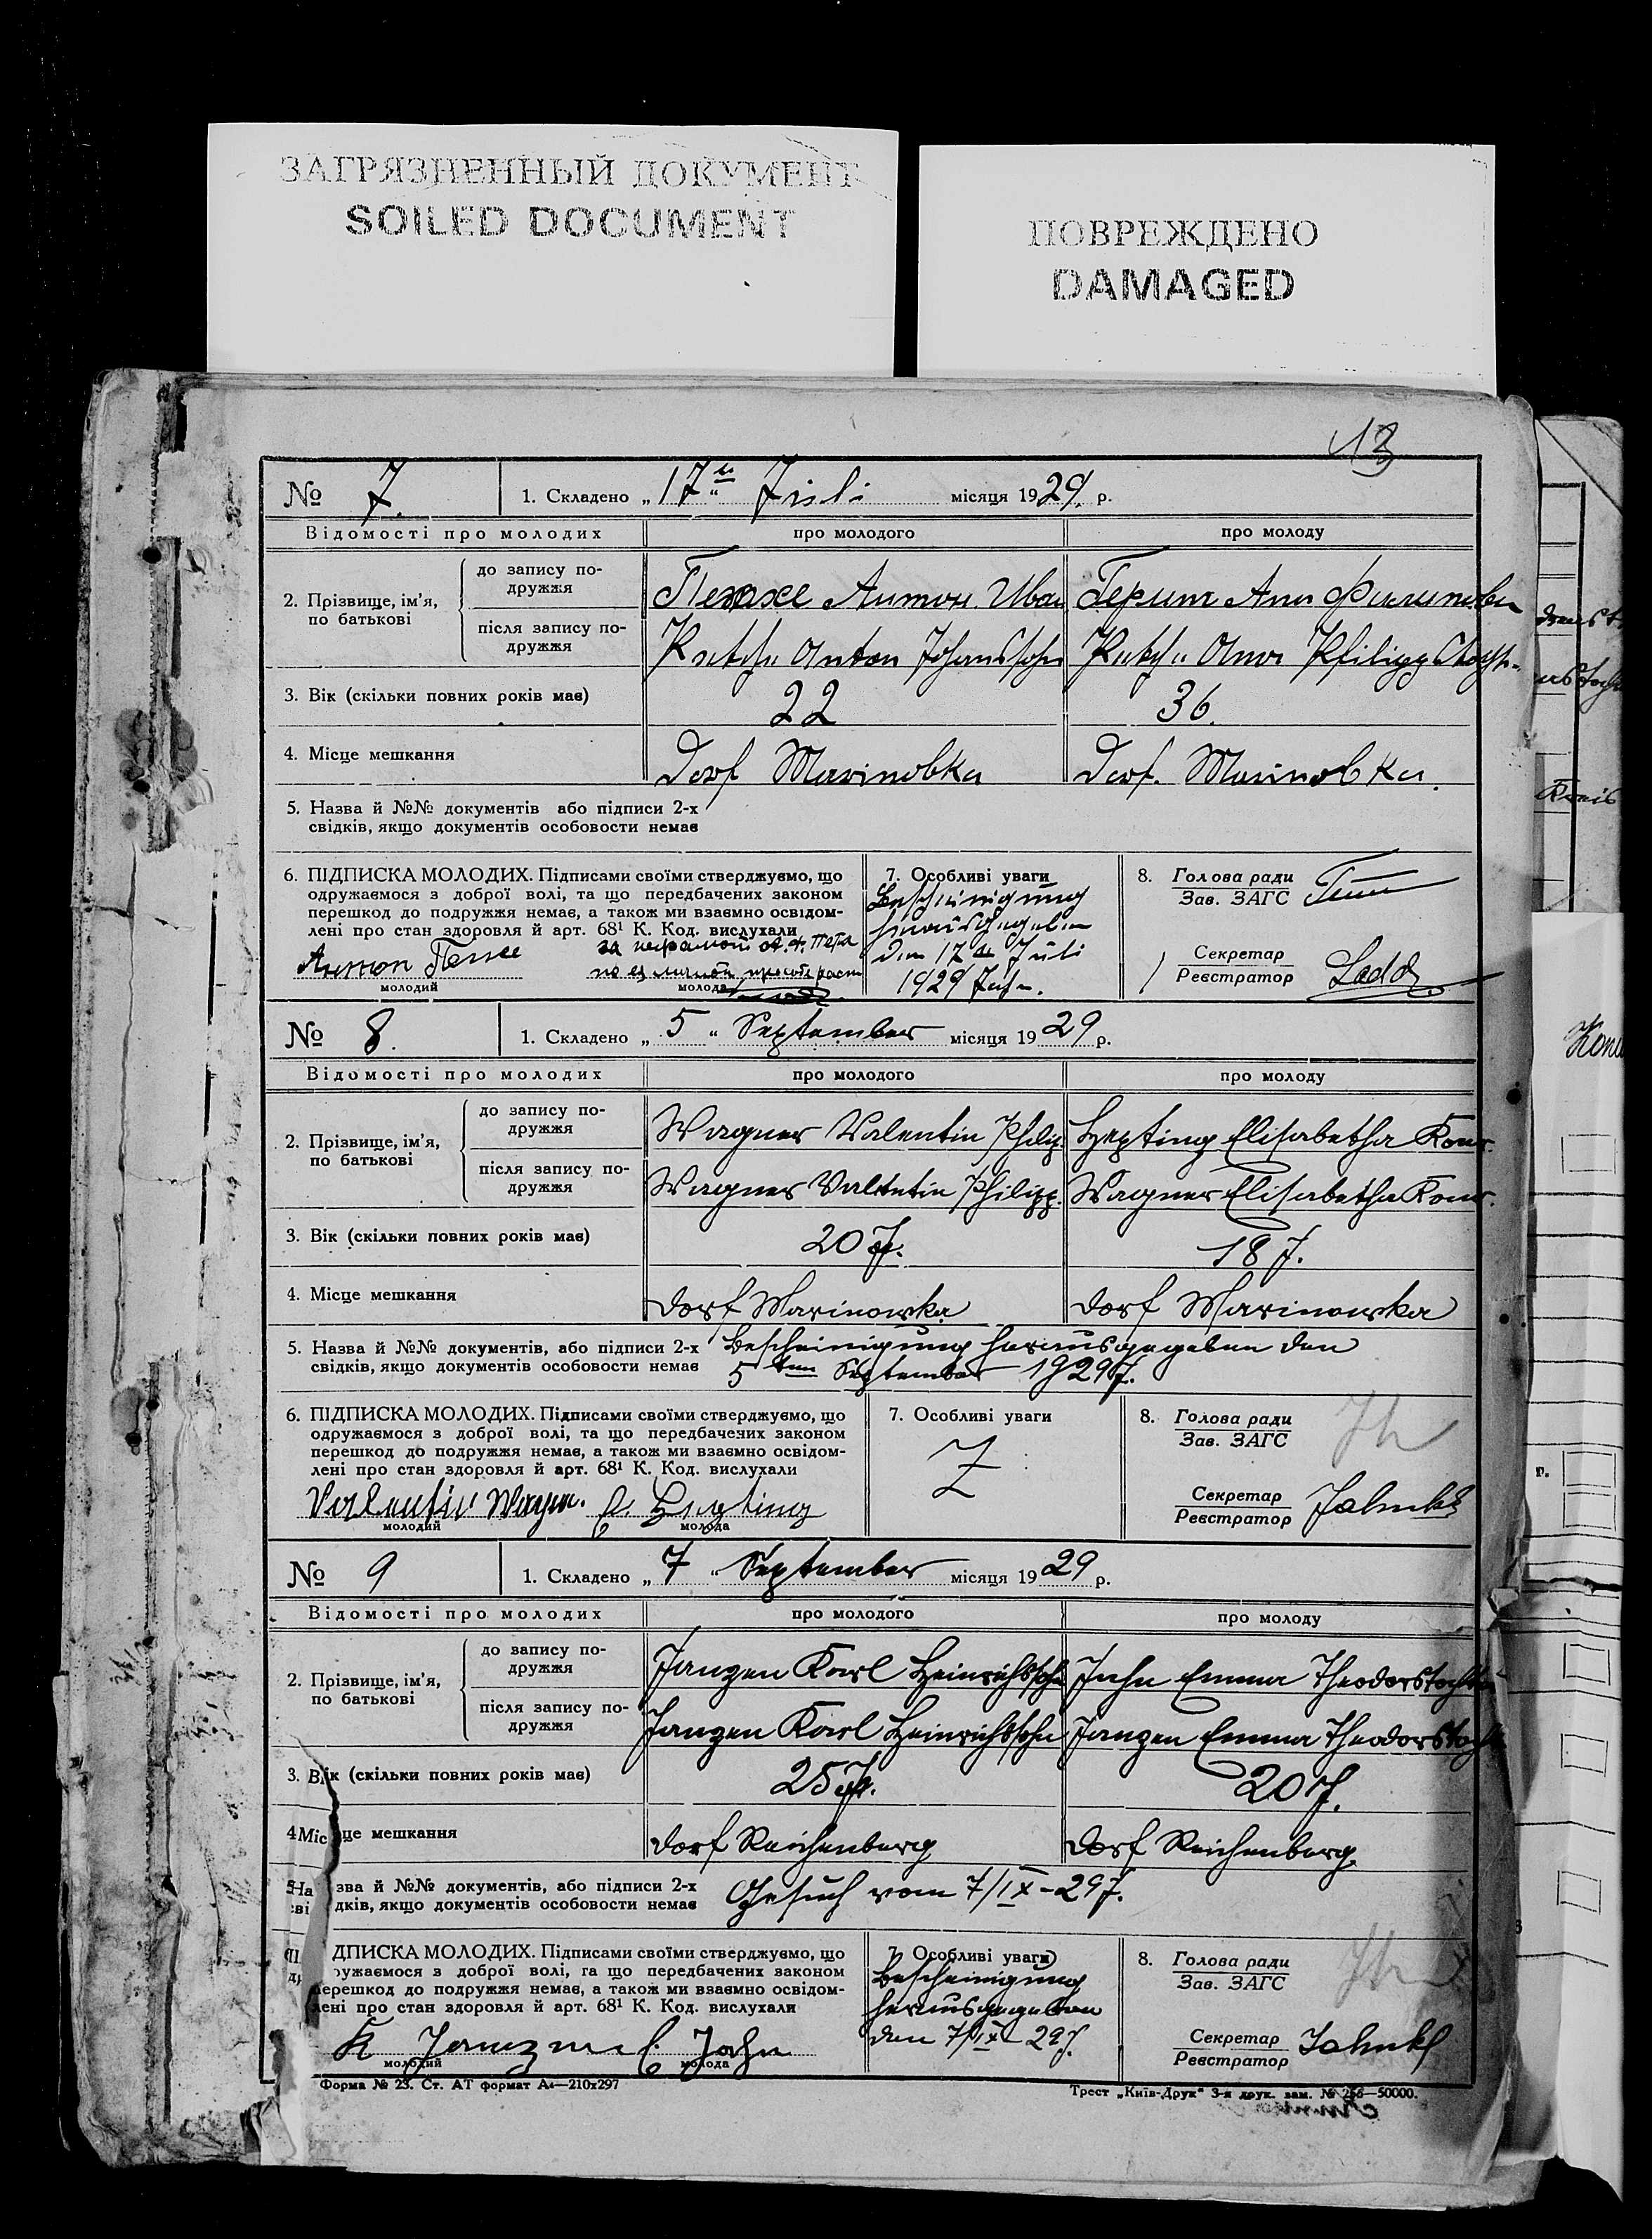 ЗАГРЯЗНЕННЫЙ ДОКУМЕНТ
SOILED DOCUMENT
ПОВРЕЖДЕНО
DAMAGED
13
№ 7. 1. Складено „17" Juli місяця 1929. р.
Відомості про молодих про молодого про молоду
2. Прізвище, ім'я, по батькові
до запису подружжя Антон Иван Анн Филипповн
після запису подружжя Anton Johanssohn Anna Philippstocht.
3. Вік (скільки повних років має) 22 36.
4. Місце мешкання Dorf Marinovka Dorf. Marinovka.
5. Назва й №№ документів або підписи 2-х
свідків, якщо документів особовости немає
6. ПІДПИСКА МОЛОДИХ. Підписами своїми стверджуємо, що
одружаємося з доброї волі, та що передбачених законом
перешкод до подружжя немає, а також ми взаємно освідом-
лені про стан здоровля й арт. 68¹ К. Код. вислухали
Антон
молодий молода
7. Особливі уваги
Bescheinigung
herausgegeben
den 17ten Juli
1929 Jahr.
8. Голова ради
Зав. ЗАГС
Секретар
Реєстратор
№ 8. 1. Складено „5" September місяця 1929 р.
Відомості про молодих про молодого про молоду
2. Прізвище, ім'я, по батькові
до запису подружжя Wagner Valentin Philip Hepting Elisabetha Konr.
після запису подружжя Wagner Valentin Philipp. Wagner Elisabetha Konr.
3. Вік (скільки повних років має) 20 J. 18 J.
4. Місце мешкання Dorf Marinowka Dorf Marinowka
5. Назва й №№ документів, або підписи 2-х Bescheinigung herausgegeben den
свідків, якщо документів особовости немає 5ten September 1929 J.
6. ПІДПИСКА МОЛОДИХ. Підписами своїми стверджуємо, що
одружаємося з доброї волі, та що передбачених законом
перешкод до подружжя немає, а також ми взаємно освідом-
лені про стан здоровля й арт. 68¹ К. Код. вислухали
Valentin Wagn. E. Hepting
молодий молода
7. Особливі уваги
8. Голова ради
Зав. ЗАГС
Секретар
Реєстратор Jahnke
№ 9 1. Складено „7" September місяця 1929 р.
Відомості про молодих про молодого про молоду
2. Прізвище, ім'я, по батькові
до запису подружжя Janzen Karl Heinrichssohn Jahn Emma Theodorstochter
після запису подружжя Janzen Karl Heinrichssohn Janzen Emma Theodorstocht
3. Вік (скільки повних років має) 25 J. 20 J.
4 Місце мешкання Dorf Reichenberg Dorf Reichenberg
5 Назва й №№ документів, або підписи 2-х Gesuch vom 7/IX-29 J.
свідків, якщо документів особовости немає
ПІДПИСКА МОЛОДИХ. Підписами своїми стверджуємо, що
одружаємося з доброї волі, та що передбачених законом
перешкод до подружжя немає, а також ми взаємно освідом-
лені про стан здоровля й арт. 68¹ К. Код. вислухали
K Janzen E. Jahn
молодий молода
7. Особливі уваги
Bescheinigung
herausgegeben
den 7/IX-29 J.
8. Голова ради
Зав. ЗАГС
Секретар
Реєстратор Jahnke
Форма № 23. Ст. АТ формат А4—210x297
Трест „Київ-Друк" 3-я друк. зам. № 256—50000.